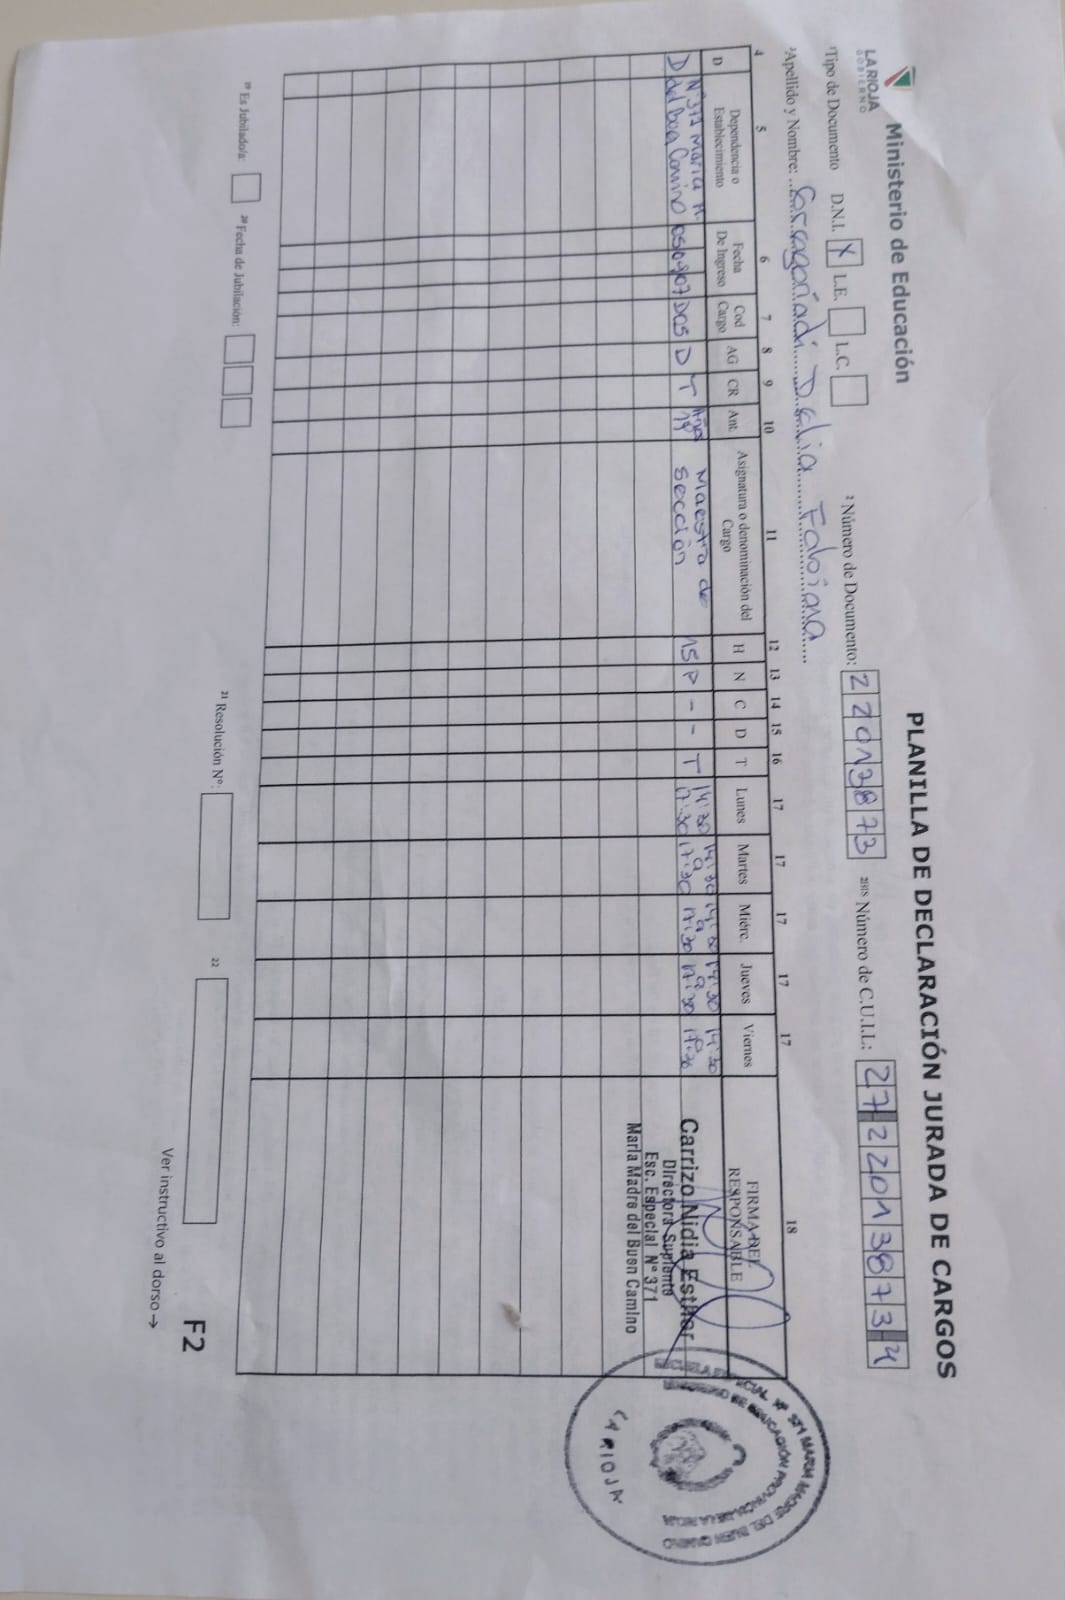 LA RIOJA
GOBIERNO
Ministerio de Educación
PLANILLA DE DECLARACIÓN JURADA DE CARGOS
¹Tipo de Documento D.N.I. X L.E. L.C.
² Número de Documento: 22013873
2BIS Número de C.U.I.L.: 27220138734
³Apellido y Nombre: Delia Fabiana
4 5 6 7 8 9 10 11 12 13 14 15 16 17 17 17 17 17 18
D Dependencia o Establecimiento Fecha De Ingreso Cod Cargo AG CR Ant. Asignatura o denominación del Cargo H N C D T Lunes Martes Miérc. Jueves Viernes FIRMA DEL RESPONSABLE
Nº371 Maria M. Años Maestra de 14:30 14:30 14:30 14:30 14:30
D del Buen Camino D05 D T 19 Sección 15 P - - T a a a a
17:30 17:30 17:30 17:30 17:30
Carrizo Nidia Esther
Directora Suplente
Esc. Especial N° 371
María Madre del Buen Camino
ESCUELA ESPECIAL Nº 371 MARIA MADRE DEL BUEN CAMINO
LA RIOJA
¹⁹ Es Jubilado/a: ²⁰ Fecha de Jubilación: ²¹ Resolución Nº: 22
F2
Ver instructivo al dorso →